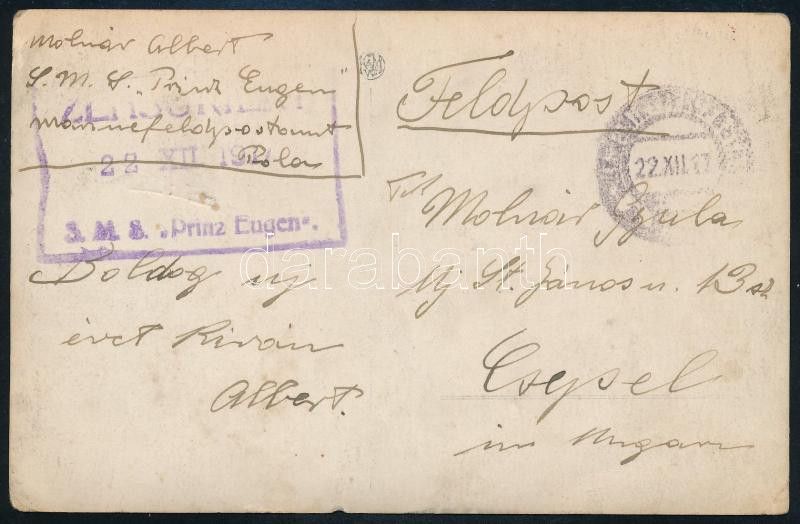 Molnár Albert
S. M. S. „Prinz Eugen"
Marinefeldpostamt
Pola
ZENSURIERT
22 XII 191
S. M. S. „Prinz Eugen".
Boldog új
évet Kiván
Albert.
Feldpost
22.XII.17
Molnár Gyula
Uj St. János u. 13 sz
Csepel
in Ungarn
darabanth